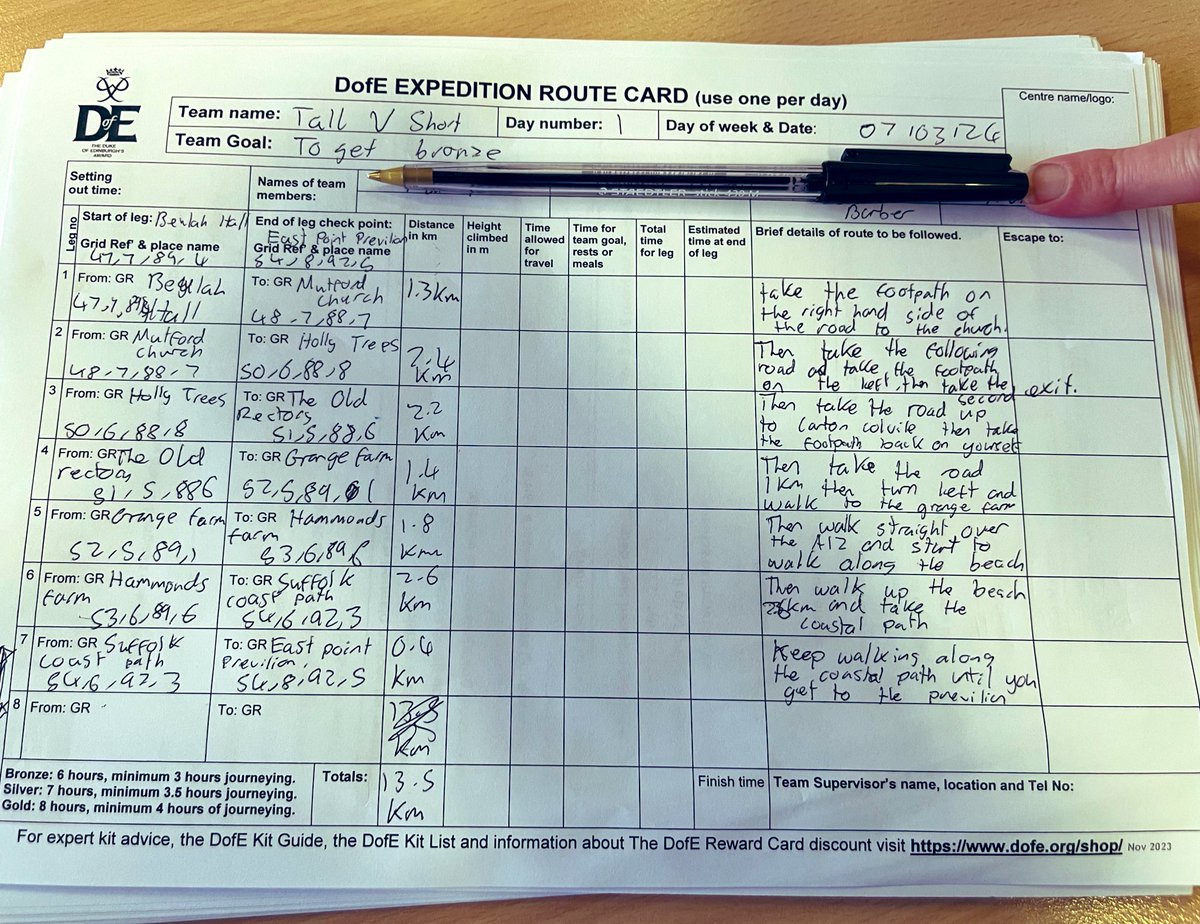 DofE EXPEDITION ROUTE CARD (use one per day)
Centre name/logo:
DofE
THE DUKE
OF EDINBURGH'S
AWARD
Team name: Tall V Short
Day number: 1
Day of week & Date: 07/03/24
Team Goal: To get bronze
Setting
out time:
Names of team
members:
STAEDTLER stick 430 M
Barber
Leg no
Start of leg: Beulah Hall
Grid Ref' & place name
47,7,89,4
End of leg check point:
East Point Previlion
Grid Ref' & place name
54,8,92,5
Distance
in km
Height
climbed
in m
Time
allowed
for
travel
Time for
team goal,
rests or
meals
Total
time
for leg
Estimated
time at end
of leg
Brief details of route to be followed.
Escape to:
1
From: GR Beulah
Hall
47,7,89,4
To: GR Mutford
church
48,7,88,7
1.3km
take the footpath on
the right hand side of
the road to the church.
2
From: GR Mutford
church
48,7,88,7
To: GR Holly Trees
50,6,88,8
2.4
km
Then take the following
road and take the footpath
on the left, then take the second exit.
3
From: GR Holly Trees
50,6,88,8
To: GR The Old
Rectors
51,5,88,6
2.2
km
Then take the road up
to Carton colvile then take
the footpath back on yourself
4
From: GR The Old
rectory
51,5,886
To: GR Grange farm
52,5,89,1
1.4
km
Then take the road
1km then turn left and
walk to the grange farm
5
From: GR Grange farm
52,5,89,1
To: GR Hammonds
farm
53,6,89,6
1.8
km
Then walk straight over
the A12 and start to
walk along the beach
6
From: GR Hammonds
farm
53,6,89,6
To: GR Suffolk
coast path
54,6,92,3
2.6
km
Then walk up the beach
km and take the
coastal path
7
From: GR Suffolk
coast path
54,6,92,3
To: GR East point
Previlion
54,8,92,5
0.4
km
Keep walking along
the coastal path until you
get to the previlion
8
From: GR
To: GR
km
Bronze: 6 hours, minimum 3 hours journeying.
Silver: 7 hours, minimum 3.5 hours journeying.
Gold: 8 hours, minimum 4 hours of journeying.
Totals:
13.5
km
Finish time
Team Supervisor's name, location and Tel No:
For expert kit advice, the DofE Kit Guide, the DofE Kit List and information about The DofE Reward Card discount visit https://www.dofe.org/shop/ Nov 2023